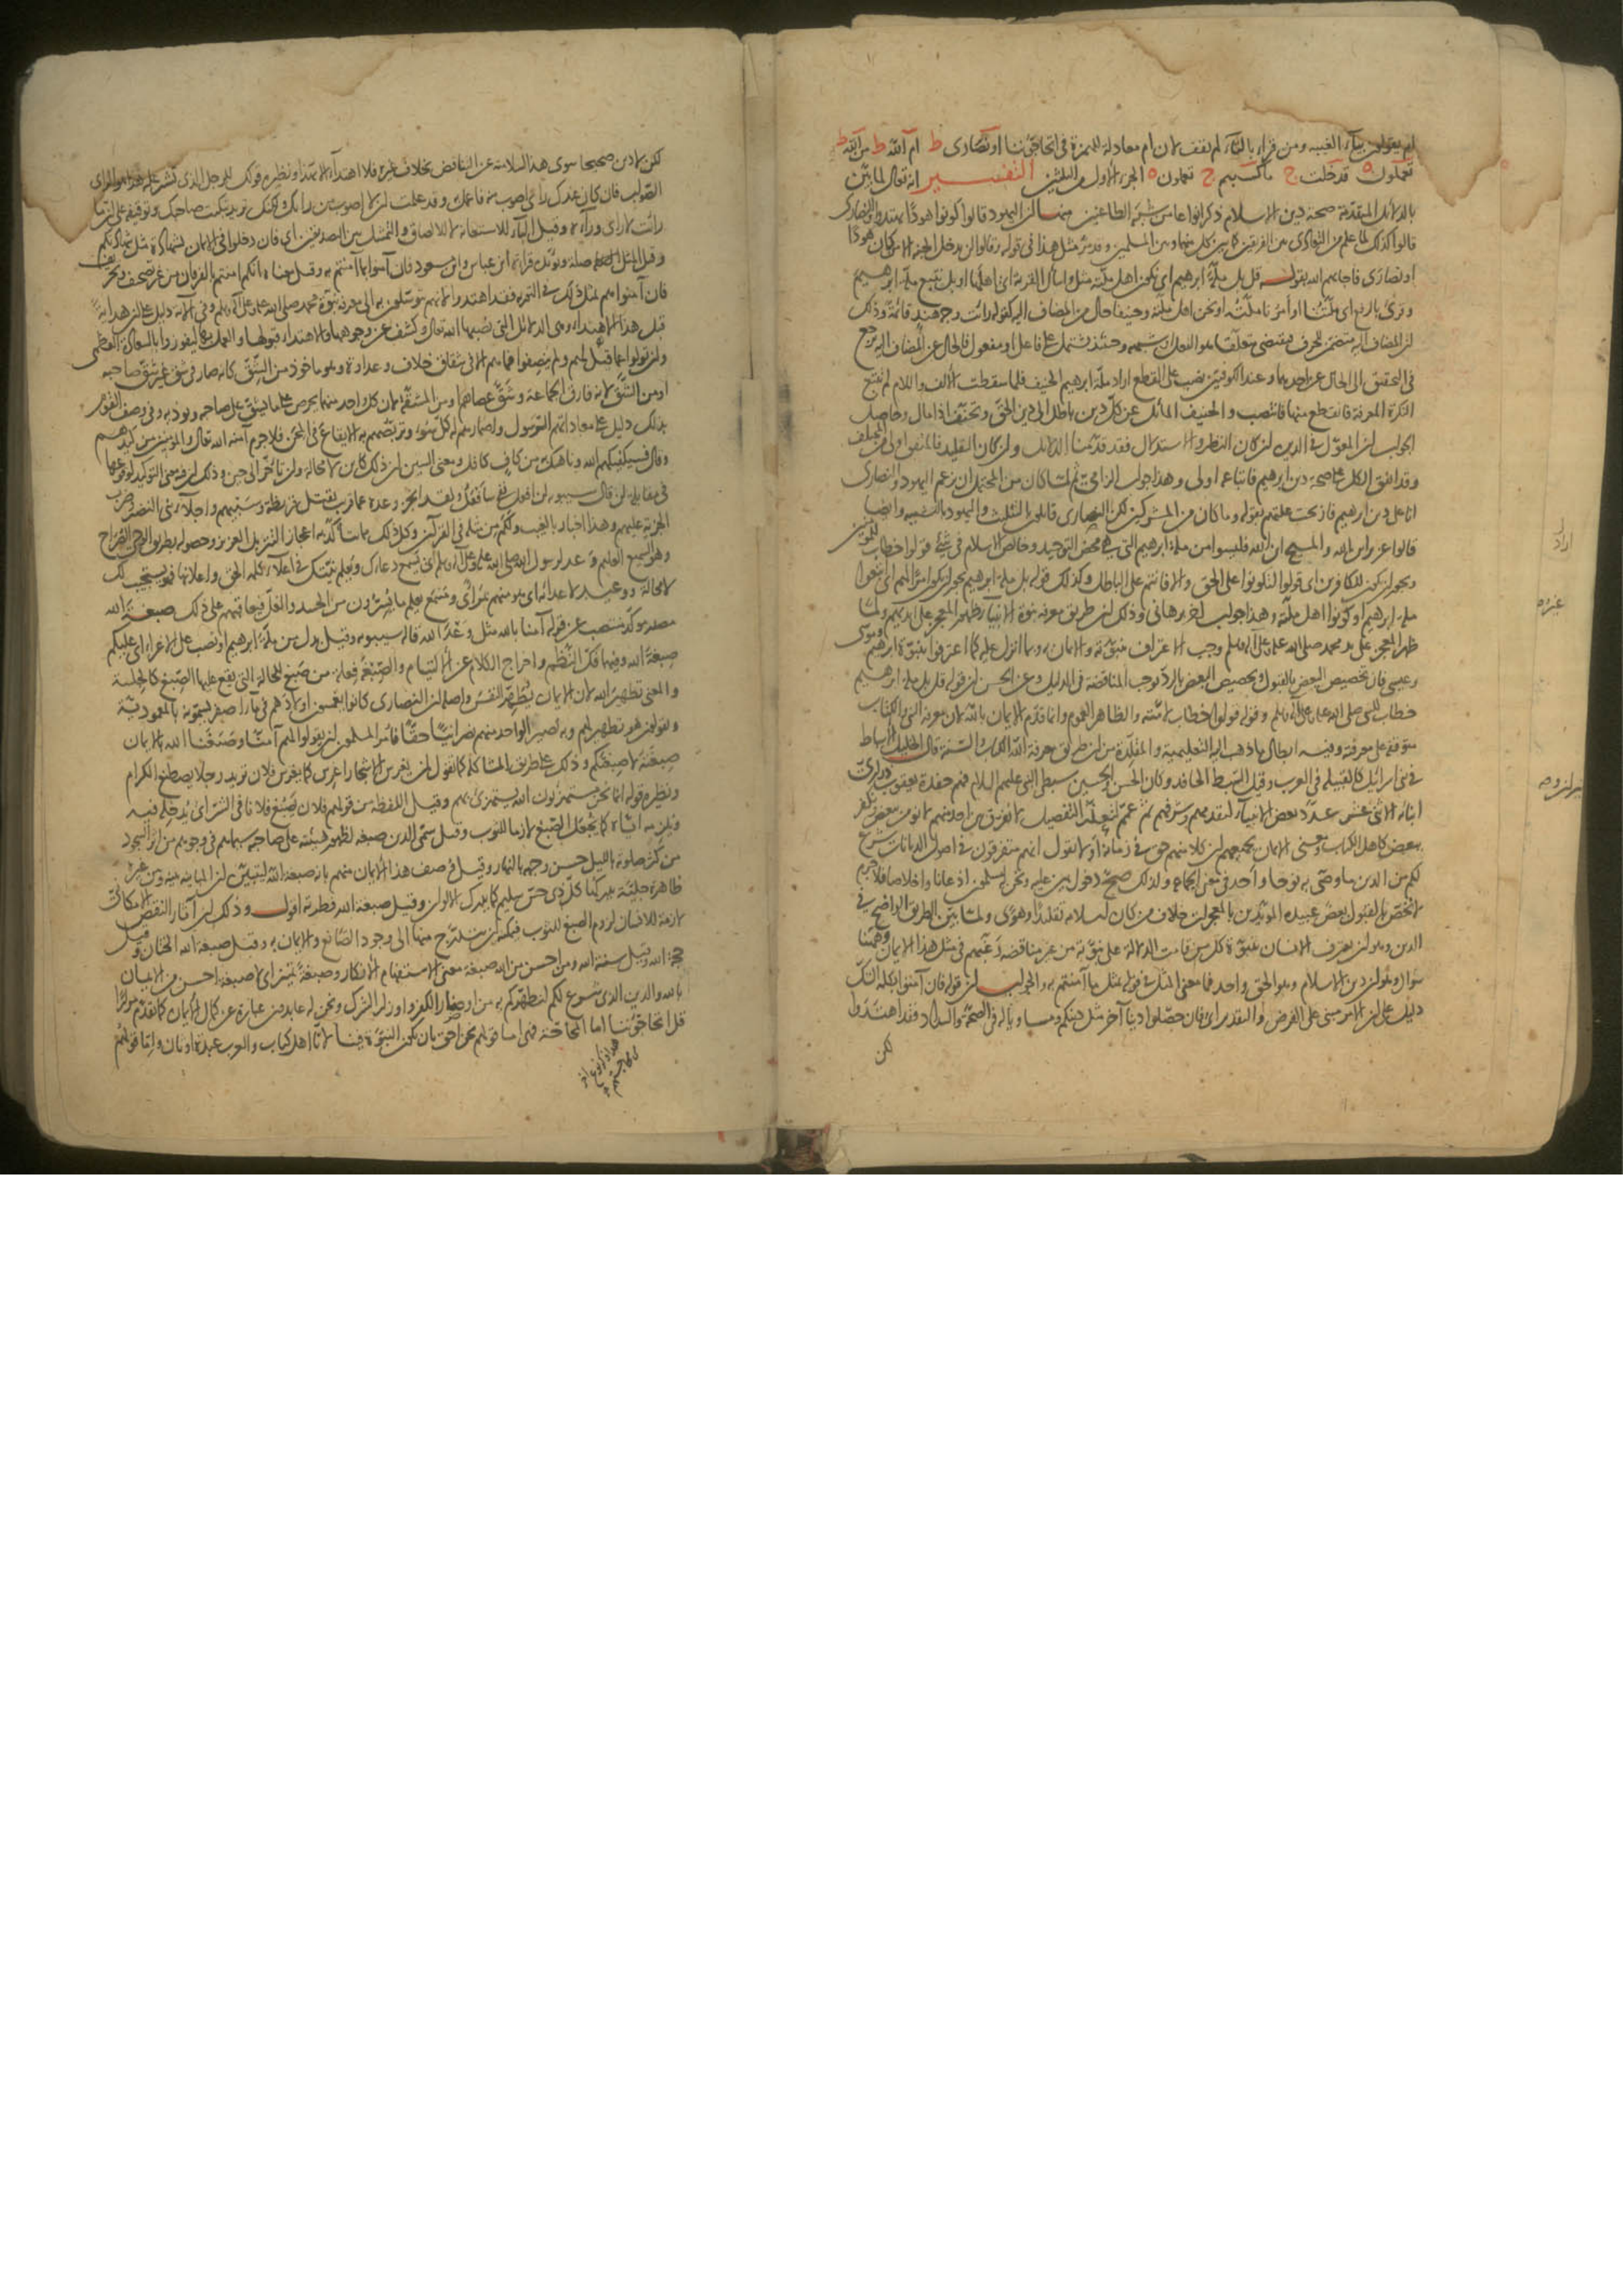 ام يقولون بياء الغيبة ومن قرأ بالتاء لم يقف لان ام معادلة للهمزة في اتحاجوننا او نصارى ط ام الله ط من الله ط
تعملون ه قد خلت ج ما كسبتم ج تعملون ه الجزء الاول من الثلثين التفسير انه تعالى لما بين
بالدلائل المتقدمة صحة دين الاسلام ذكر انواعا من شبه الطاعنين منها ان اليهود قالوا كونوا هودا تهتدوا والنصارى
قالوا كذلك لما علم من التعادي بين الفريقين كل منهما وبين المسلمين وقد مر مثل هذا في قوله وقالوا لن يدخل الجنة الا من كان هودا
او نصارى فاجابهم الله بقوله قل بل ملة ابرهيم اي نكون اهل ملته مثل واسأل القرية اي اهلها او بل نتبع ملة ابرهيم
وقرئ بالرفع اي ملته ملتنا او امرنا ملته او نحن اهل ملته وحنيفا حال من المضاف اليه كقوله رأيت وجه هند قائمة وذلك
لان المضاف اليه متضمن للحرف فيقتضي متعلقا هو الفعل او شبهه وحينئذ يشتمل على فاعل او مفعول فالحال عن المضاف اليه يرجع
في التحقيق الى الحال عن احدهما وعند الكوفيين نصب على القطع اراد ملة ابرهيم الحنيف فلما سقطت الالف واللام لم تتبع
النكرة المعرفة فانقطع منها فانتصب والحنيف المائل عن كل دين باطل الى دين الحق وتحنف اذا مال وحاصل
الجواب ان المعول في الدين ان كان النظر والاستدلال فقد قدمنا الدلائل وان كان التقليد فالمتفق اولى من المختلف
وقد اتفق الكل على صحة دين ابرهيم فاتباعه اولى وهذا جواب الزامي ثم لما كان من المحتمل ان يزعم اليهود والنصارى
انا على دين ابرهيم فازيحت علتهم بقوله وما كان من المشركين لكن النصارى قائلون بالتثليث واليهود بالتشبيه وايضا
قالوا عزير ابن الله والمسيح ابن الله فليسوا من ملة ابرهيم التي هي محض التوحيد وخالص الاسلام في شيء قولوا خطاب للمؤمنين
ويجوز ان يكون للكافرين اي قولوا لتكونوا على الحق والا فانتم على الباطل وكذلك قوله بل ملة ابرهيم يجوز ان يكون امرا لهم اي اتبعوا
ملة ابرهيم او كونوا اهل ملته وهذا جواب اخر برهاني وذلك ان طريق معرفة نبوة الانبياء ظهور المعجز على يدهم ولما
ظهر المعجز على يد محمد صلى الله عليه وعلى آله وسلم وجب الاعتراف بنبوته والايمان به وبما انزل عليه كما اعترفوا بنبوة ابرهيم وموسى
وعيسى فان تخصيص البعض بالقبول وتخصيص البعض بالرد يوجب المناقضة في الدليل وعن الحسن ان قوله قل بل ملة ابرهيم
خطاب للنبي صلى الله عليه وعلى آله وسلم وقوله قولوا خطاب لامته والظاهر العموم وانما قدم الايمان بالله لان معرفة النبي والكتاب
متوقفة على معرفته وفيه ابطال ما ذهب اليه التعليمية والمقلدة من ان طريق معرفة الله الكتاب والسنة قال الخليل الاسباط
في بني اسرائيل كالقبيلة في العرب وقيل السبط الحافد وكان الحسن والحسين سبطي النبي عليهم السلام فهم حفدة يعقوب ذراري
ابنائه الاثني عشر عدد بعض الانبياء لتقدمهم وشرفهم ثم عمم لتعذر التفصيل لا نفرق بين احد منهم لا نؤمن ببعض ونكفر
ببعض كاهل الكتاب
لكم من الدين ما وصى به نوحا واحد في معنى الجماعة ولذلك صح دخول بين عليه ونحن له مسلمون اذعانا واخلاصا فلا جرم
الدين وهو ان يعرف الانسان بنبوة كل من قامت الدلالة على نبوته من غير مناقضة
سؤال وهو ان دين الاسلام وهو الحق واحد فما معنى المثل في قوله مثل ما آمنتم به والجواب ان قوله فان آمنوا بكلمة الشك
دليل على ان الامر مبني على الفرض والتقدير اي فان حصلوا دينا آخر مثل دينكم ومساويا له في الصحة والسداد فقد اهتدوا
لكن
لكن لا دين صحيحا سوى هذا لسلامته عن التناقض بخلاف غيره فلا اهتداء الا بهذا ونظيره قولك للرجل الذي تشير عليه هذا هو الرأي
الصواب فان كان عندك رأي اصوب منه فاعمل به وقد علمت ان لا اصوب من رأيك ولكنك تريد تبكيت صاحبك وتوقيفه على ان ما
رأيت لا رأي وراءه وقيل الباء للاستعانة لا للالصاق والتمثيل بين التصديقين اي فان دخلوا في الايمان بشهادة مثل شهادتكم
وقيل المثل صلة ويؤيده قراءة ابن عباس وابن مسعود فان آمنوا بما آمنتم به وقيل معناه انكم آمنتم بالفرقان من غير تصحيف وتحريف
فان آمنوا هم بمثل ذلك في التوراة فقد اهتدوا لانهم يتوسلون به الى معرفة نبوة محمد صلى الله عليه وعلى آله وسلم وفي الآية دليل على ان الهداية
قبل هذا الاهتداء وهي الدلائل التي نصبها الله تعالى وكشف عن وجوهها والاهتداء قبولها والعمل بها ليفوزوا بالسعادة العظمى
وان تولوا عما قيل لهم ولم ينصفوا فما هم الا في شقاق خلاف وعداوة وهو ماخوذ من الشق كانه صار في شق غير شق صاحبه
او من الشق لانه فارق الجماعة وشق عصاهم او من المشقة لان كل واحد منهما يحرص على ما يشق على صاحبه ويؤذيه وفي وصف القوم
بذلك دليل على معاداتهم الرسول واضمارهم له كل سوء وتربصهم به الايقاع في المحن فلا جرم آمنه الله تعالى والمؤمنين من كيدهم
وقال فسيكفيكهم الله وناهيك به من كاف كافل ومعنى السين ان ذلك كائن لا محالة وان تأخر الى حين وذلك ان فيه معنى التوكيد لوقوعها
في مقابلة لن قال سيبويه لن افعل نفي سأفعل ولقد انجز وعده عما قريب بقتل قريظة وسبيهم واجلاء بني النضير وضرب
الجزية عليهم وهذا اخبار بالغيب وكم من مثله في القرآن وكل ذلك مما يتأكد به اعجاز التنزيل العزيز وحصوله بطريق الوحي الصراح
وهو السميع العليم وعد لرسول الله صلى الله عليه وعلى آله وسلم اي يسمع دعاءك ويعلم نيتك في اعلاء كلمة الحق واعلانها فهو يستجيب لك
لا محالة او وعيد لاعدائه اي هو منهم بمرأى ومسمع يعلم ما يسرون من الحسد والغل فيعاقبهم على ذلك صبغة الله
مصدر مؤكد منتصب عن قوله آمنا بالله مثل وعد الله قاله سيبويه وقيل بدل من ملة ابرهيم او نصب على الاغراء اي عليكم
صبغة الله وفيهما فك النظم واخراج الكلام عن الالتيام والصبغة فعلة من صبغ للحالة التي يقع عليها الصبغ كالجلسة
والمعنى تطهير الله لان الايمان يطهر النفوس واصله ان النصارى كانوا يغمسون اولادهم في ماء اصفر يسمونه بالمعمودية
ويقولون هو تطهير لهم وبه يصير الواحد منهم نصرانيا حقا فامر المسلمون ان يقولوا لهم آمنا وصبغنا الله بالايمان
صبغة لا صبغتكم وذلك على طريق المشاكلة كما تقول لمن يغرس الاشجار اغرس كما يغرس فلان تريد رجلا يصطنع الكرام
ونظيره قوله انما نحن مستهزؤن الله يستهزئ بهم وقيل اللفظة من قولهم فلان يصبغ فلانا في الشر اي يدخله فيه
ويلزمه اياه كما يجعل الصبغ لازما للثوب وقيل سمي الدين صبغة لظهور هيئته على صاحبه سيماهم في وجوههم من اثر السجود
من كثر صلوته بالليل حسن وجهه بالنهار وقيل وصف هذا الايمان منهم بانه صبغة الله ليتبين ان المباينة بينه وبين غيره
ظاهرة جلية يدركها كل ذي حس سليم كما يدرك الالوان وقيل صبغة الله فطرته اقول وذلك ان آثار النقص الامكاني
لازمة للانسان لزوم الصبغ للثوب فيمكنه ان يتدرج منها الى وجود الصانع والايمان به وقيل صبغة الله الختان وقيل
حجة الله وقيل سنة الله ومن احسن من الله صبغة معنى الاستفهام الانكار وصبغة تمييز اي لا صبغة احسن من الايمان
بالله والدين الذي شرع لكم لنطهركم به من اوضار الكفر واوزار الشرك ونحن له عابدون عبارة عن كمال الايمان كما تقدم مرارا
قل اتحاجوننا اما المحاجة فهي اما قولهم نحن احق بان تكون النبوة فينا لانا اهل كتاب والعرب عبدة اوثان واما قولهم